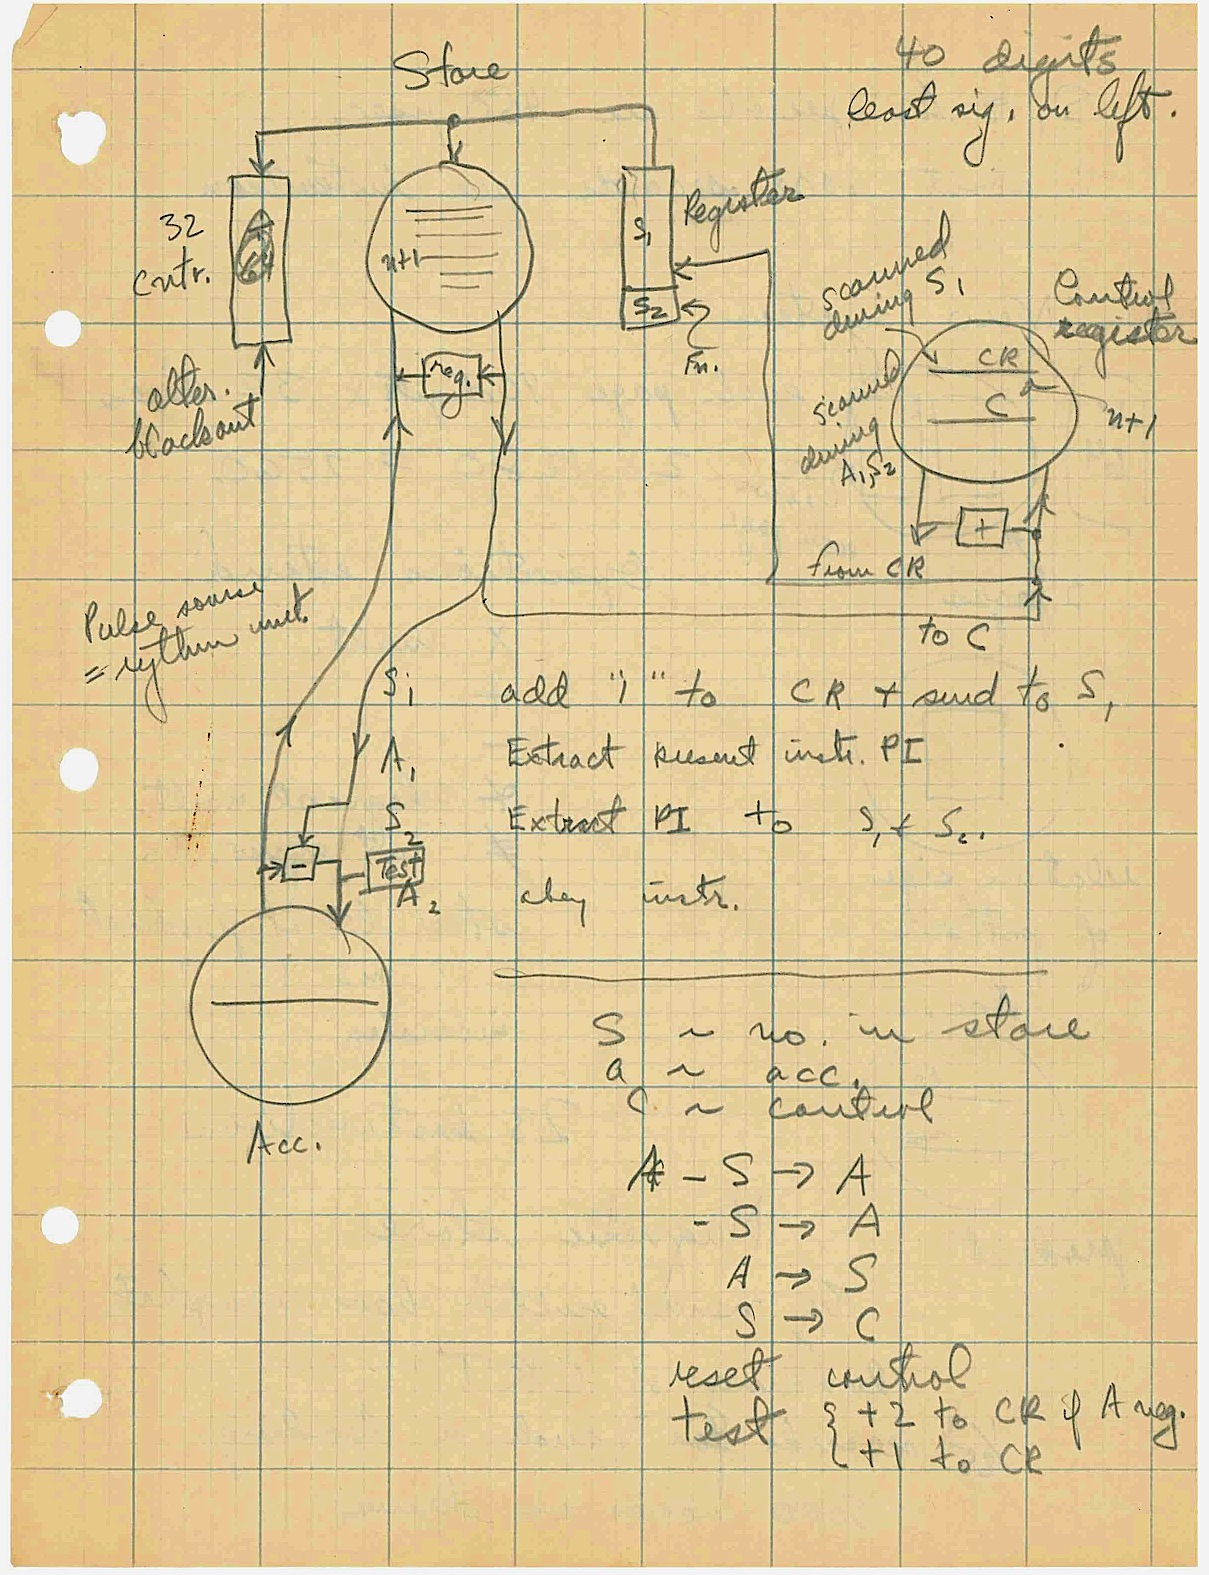 Store
40 digits
least sig. on left.
32
cntr.
64
n+1
S1
S2
Register
Fn.
reg.
alter.
blackout
scanned
during S1
Control
register
CR
C
n+1
scanned
during
A1, S2
+
from CR
to C
Pulse source
= rythm unit.
S1 add "1" to CR + send to S1
A1 Extract present instr. PI
S2 Extract PI to S1 + S2.
A2 obey instr.
-
Test
Acc.
S ~ no. in store
a ~ acc.
C ~ control
A - S → A
- S → A
A → S
S → C
reset control
test { +2 to CR if A neg.
+1 to CR